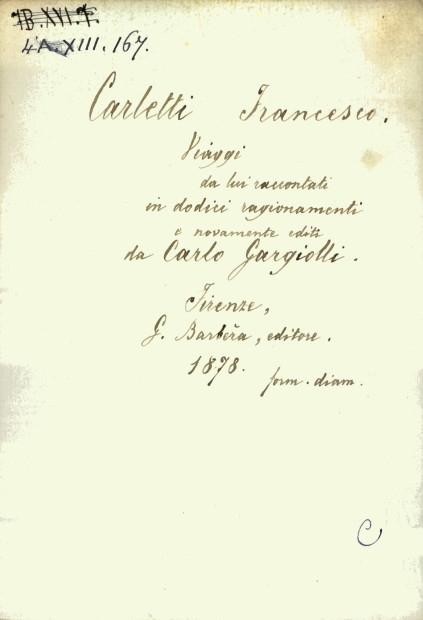 1B.XVI.7.
4A.XIII.167.
Carletti Francesco.
Viaggi
da lui raccontati
in dodici ragionamenti
e novamente editi
da Carlo Gargiolli.
Firenze,
G. Barbèra, editore.
1878.
form. diam.
C